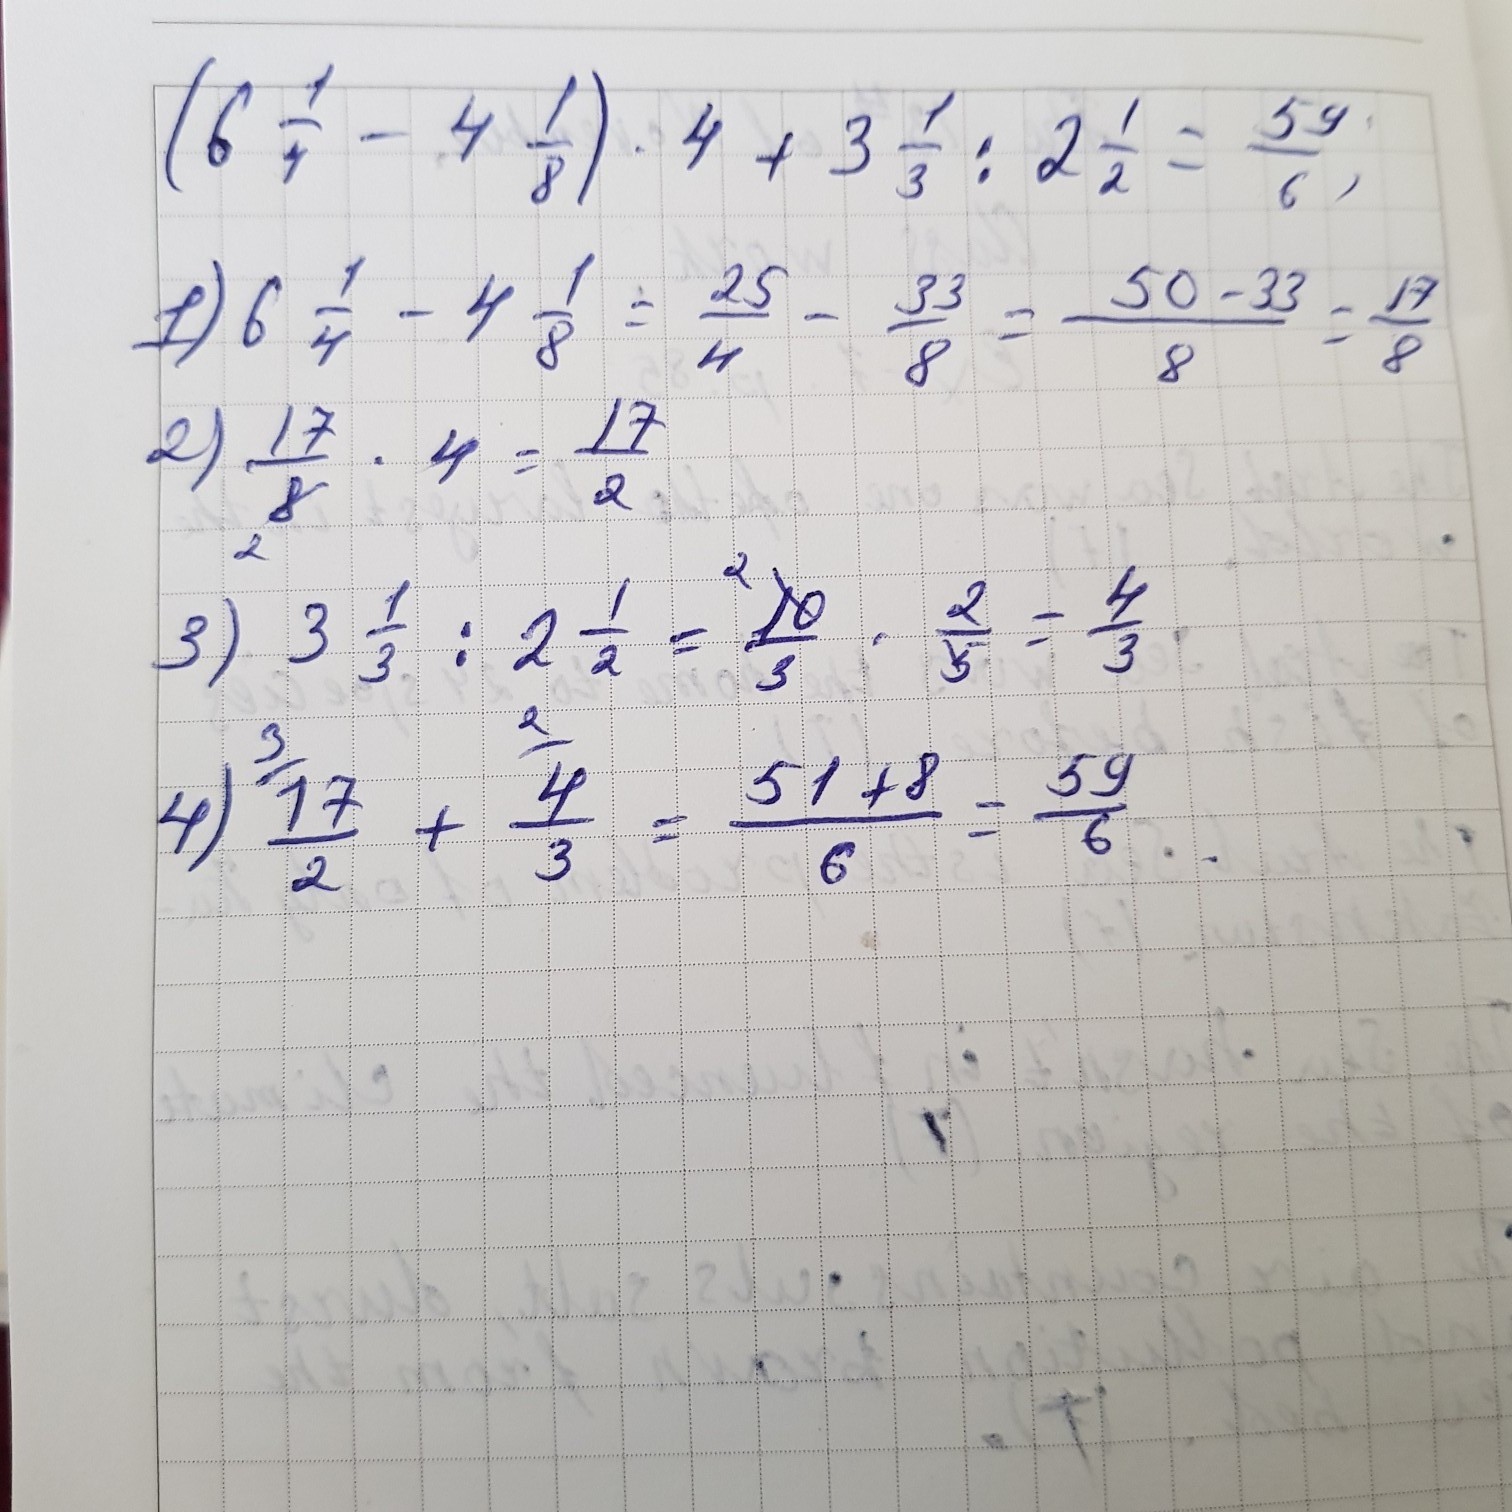 (6 1/4 - 4 1/8) · 4 + 3 1/3 : 2 1/2 = 59/6;
1) 6 1/4 - 4 1/8 = 25/4 - 33/8 = 50-33/8 = 17/8
2) 17/8 · 4 = 17/2
2
3) 3 1/3 : 2 1/2 = 2 10/3 · 2/5 = 4/3
3 2
4) 17/2 + 4/3 = 51+8/6 = 59/6.